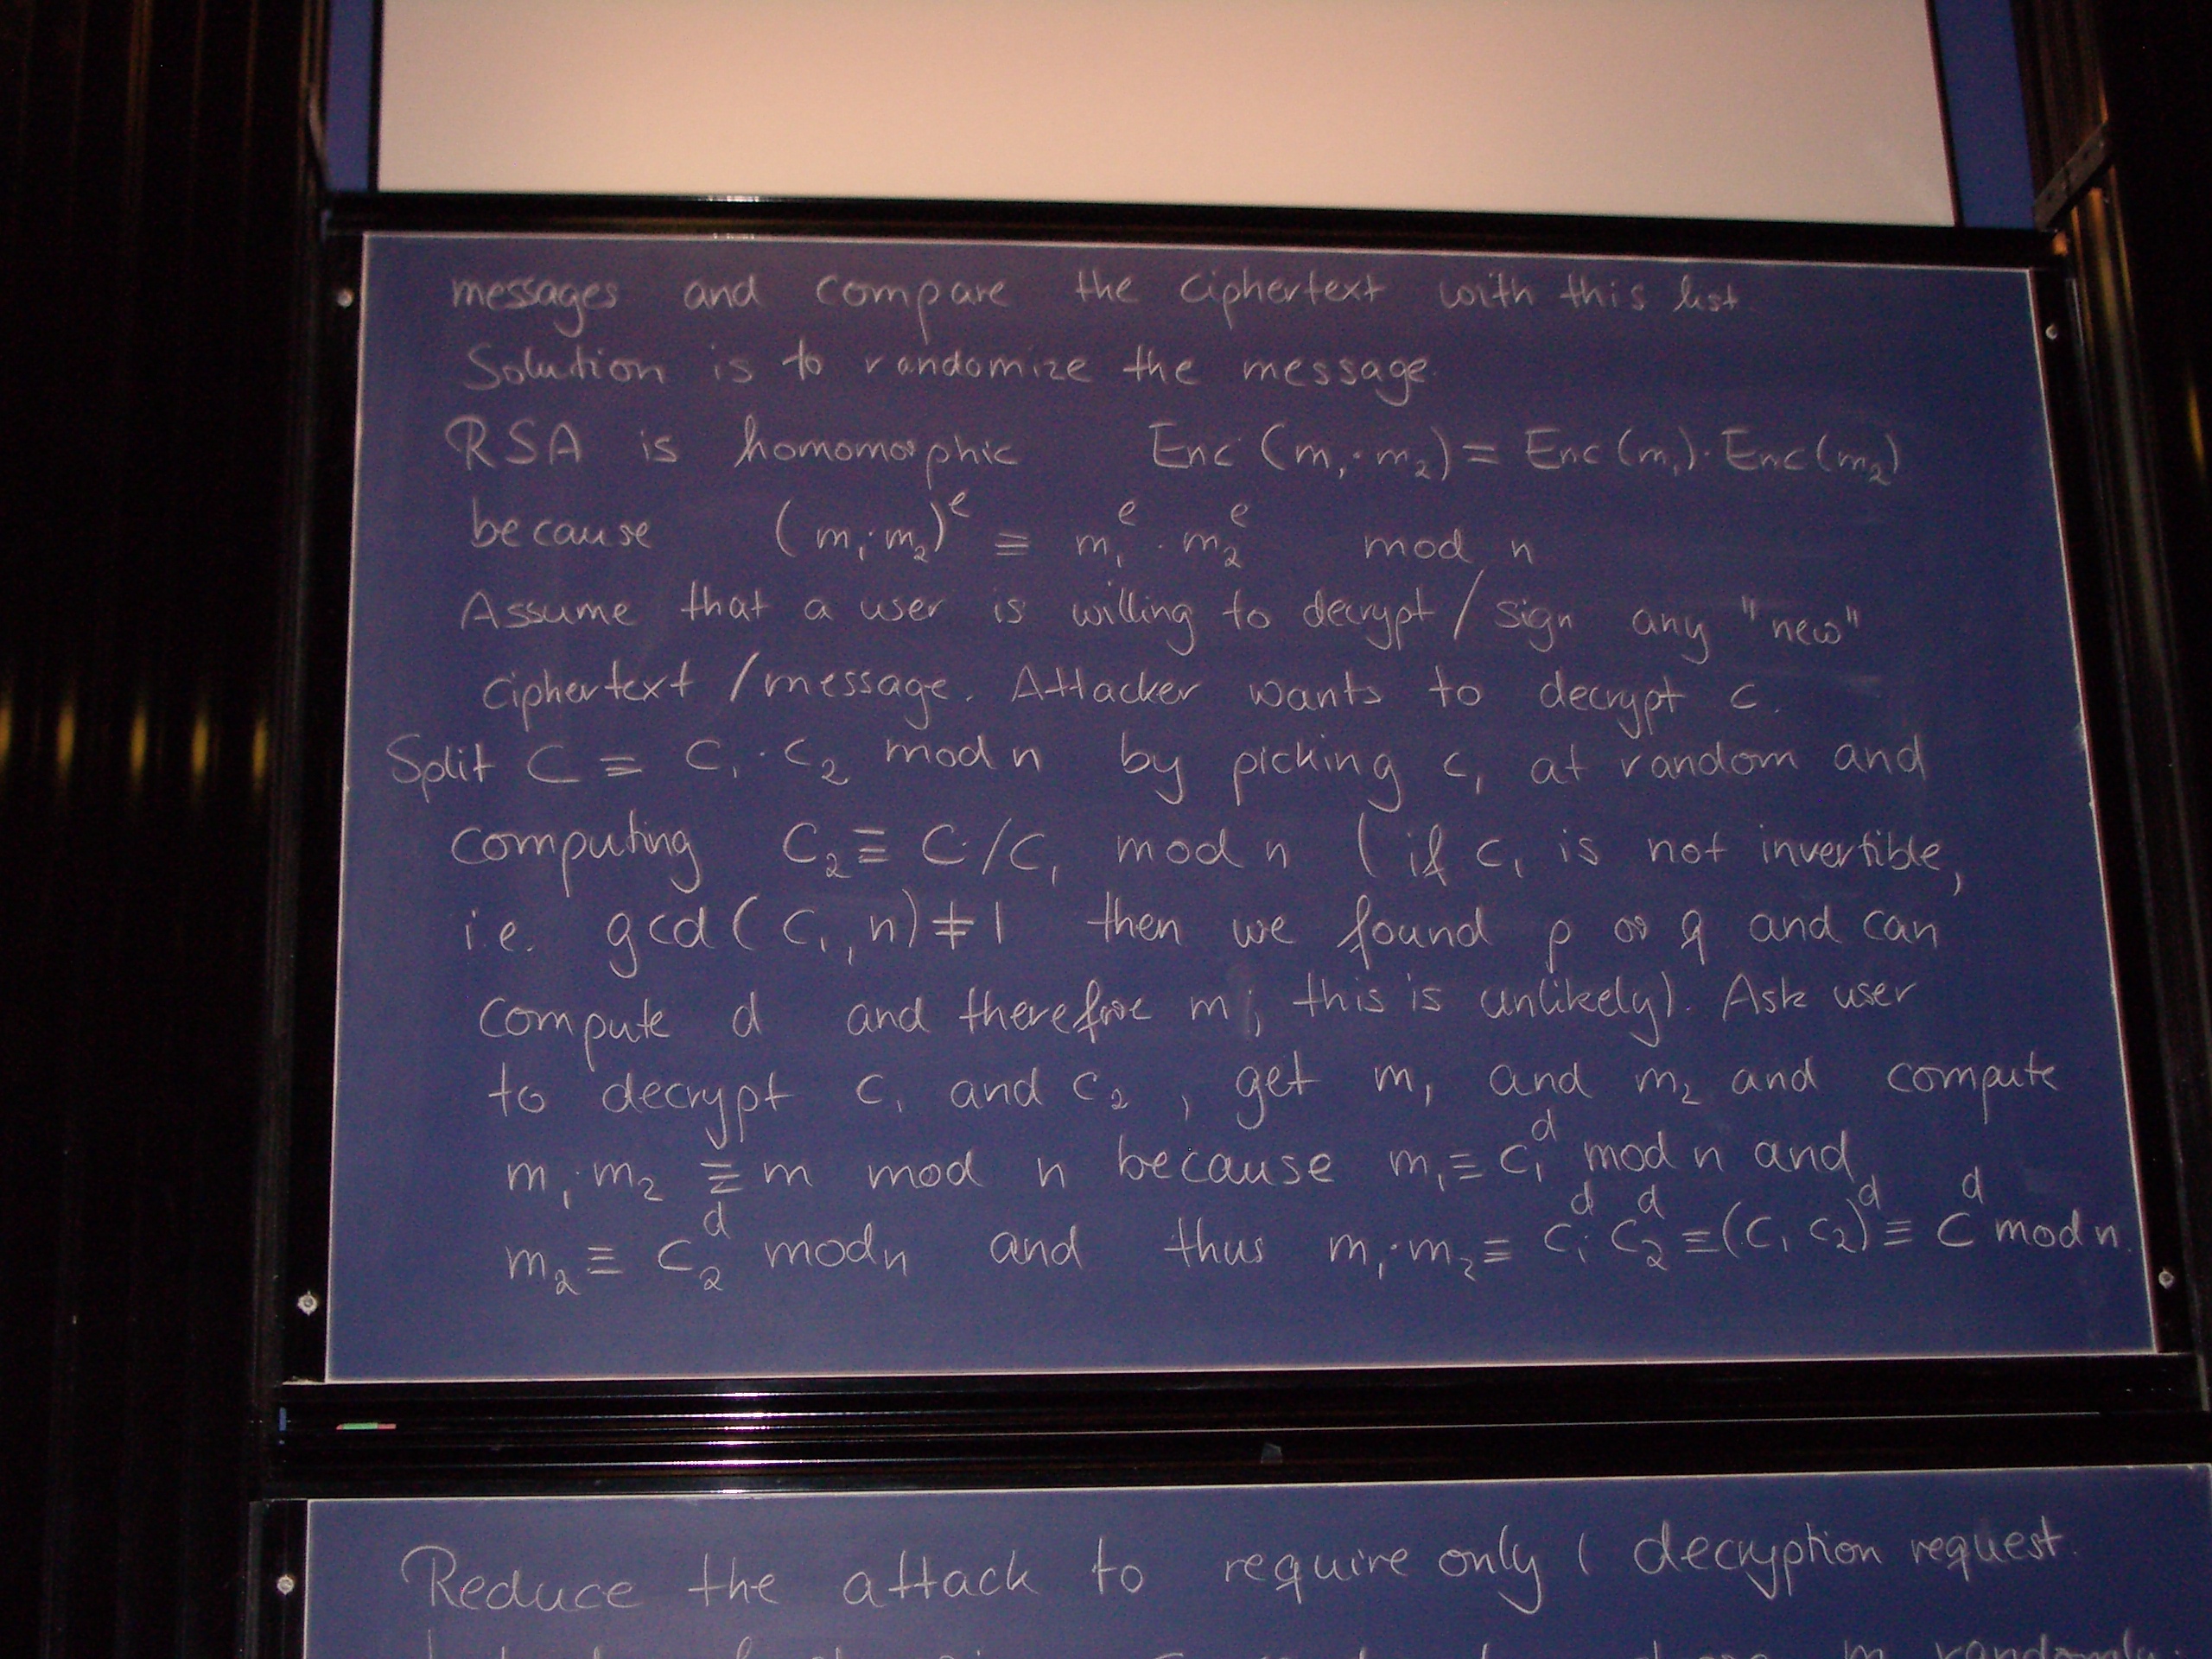 messages and compare the ciphertext with this list.
Solution is to randomize the message.
RSA is homomorphic Enc (m₁·m₂) = Enc (m₁)·Enc(m₂)
because (m₁·m₂)^e ≡ m₁^e · m₂^e mod n
Assume that a user is willing to decrypt / sign any "new"
ciphertext / message. Attacker wants to decrypt c.
Split C ≡ C₁·C₂ mod n by picking c₁ at random and
computing C₂ ≡ C/C₁ mod n (if c₁ is not invertible,
i.e. gcd(C₁, n) ≠ 1 then we found p or q and can
compute d and therefore m; this is unlikely). Ask user
to decrypt c₁ and c₂, get m₁ and m₂ and compute
m₁·m₂ ≡ m mod n because m₁ ≡ C₁^d mod n and
m₂ ≡ C₂^d mod n and thus m₁·m₂ ≡ C₁^d C₂^d ≡ (C₁ C₂)^d ≡ C^d mod n.
Reduce the attack to require only 1 decryption request.
m randomly